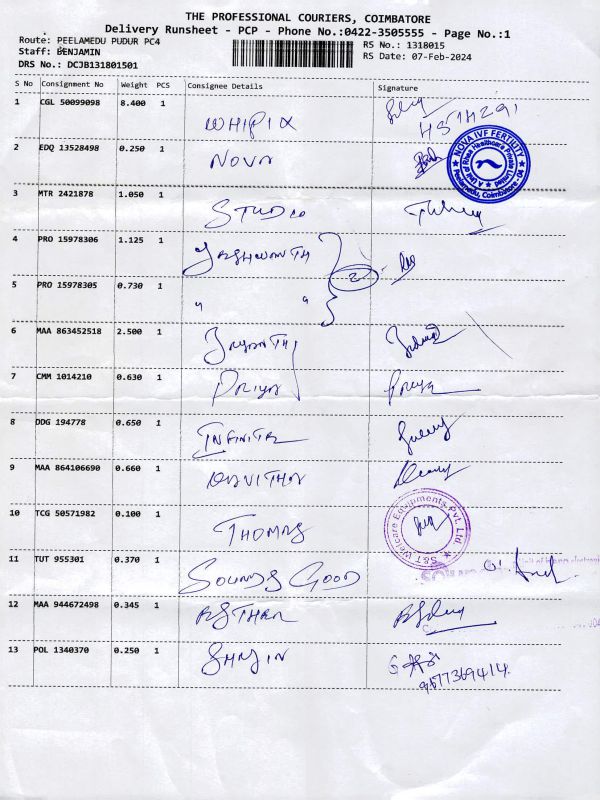 THE PROFESSIONAL COURIERS, COIMBATORE
Delivery Runsheet - PCP - Phone No.:0422-3505555 - Page No.:1
Route: PEELAMEDU PUDUR PC4
RS No.: 1318015
Staff: BENJAMIN
RS Date: 07-Feb-2024
DRS No.: DCJB131801501
S No Consignment No Weight PCS Consignee Details Signature
1 CGL 50099098 8.400 1
WHIPIX
2 EDQ 13528498 0.250 1
NOVA
NOVA IVF FERTILITY
Peelamedu, Coimbatore - 04
3 MTR 2421878 1.050 1
STUDIO
4 PRO 15978306 1.125 1
YASHWANTH
2
5 PRO 15978305 0.730 1
" "
6 MAA 863452518 2.500 1
7 CMM 1014210 0.630 1
PRIYA Priya
8 DDG 194778 0.650 1
9 MAA 864106690 0.660 1
KAVITHA
10 TCG 50571982 0.100 1
THOMAS
S&T Welcare Equipments Pvt. Ltd.
11 TUT 955301 0.370 1
SOUNDS GOOD
12 MAA 944672498 0.345 1
ESTHER
13 POL 1340370 0.250 1